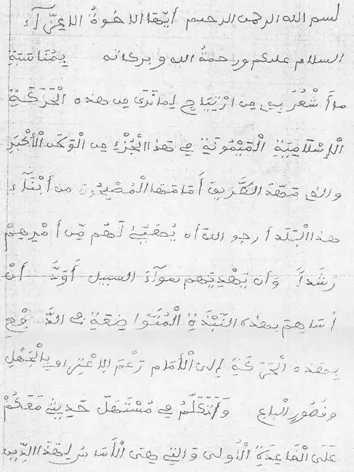 بسم الله الرحمن الرحيم أيتها الاخوة الاعزآء
السلام عليكم ورحمة الله وبركاته بمناسبة
ما أشعر به من ارتياح لما نرى من هذه الحركة
الإسلامية الميمونية في هذا الجزء من الوطن الأكبر
والتي مهد الطريق أمامها المصلحون من أبناء
هذا البلد أرجو الله أن يهيئ لهم من أمرهم
رشدا وأن يهديهم سوآء السبيل أود أن
أساهم بهذه النبذة المتواضعة في الدفع
بهذه الحركة إلى الأمام رغم الاعتراف بالجهل
وقصور الباع وأتكلم في مستهل حديثي معكم
على القاعدة الأولى والتي هي الأساس لهذا الدين